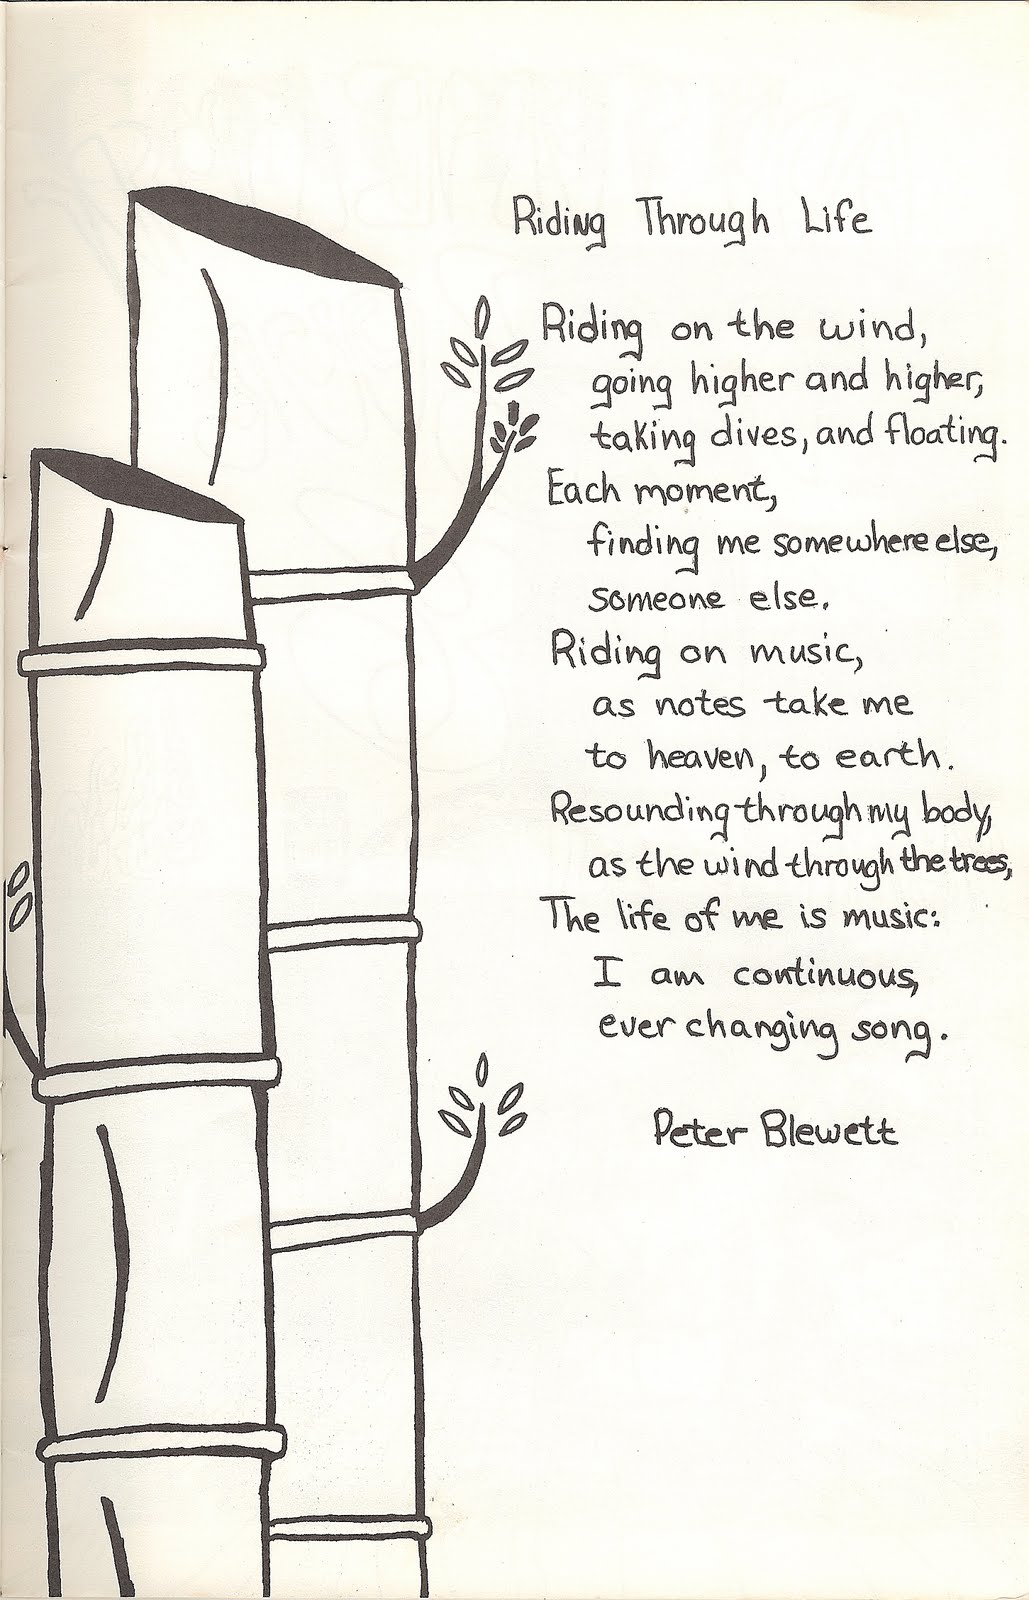 Riding Through Life
Riding on the wind,
going higher and higher,
taking dives, and floating.
Each moment,
finding me somewhere else,
someone else.
Riding on music,
as notes take me
to heaven, to earth.
Resounding through my body,
as the wind through the trees,
The life of me is music:
I am continuous,
ever changing song.
Peter Blewett